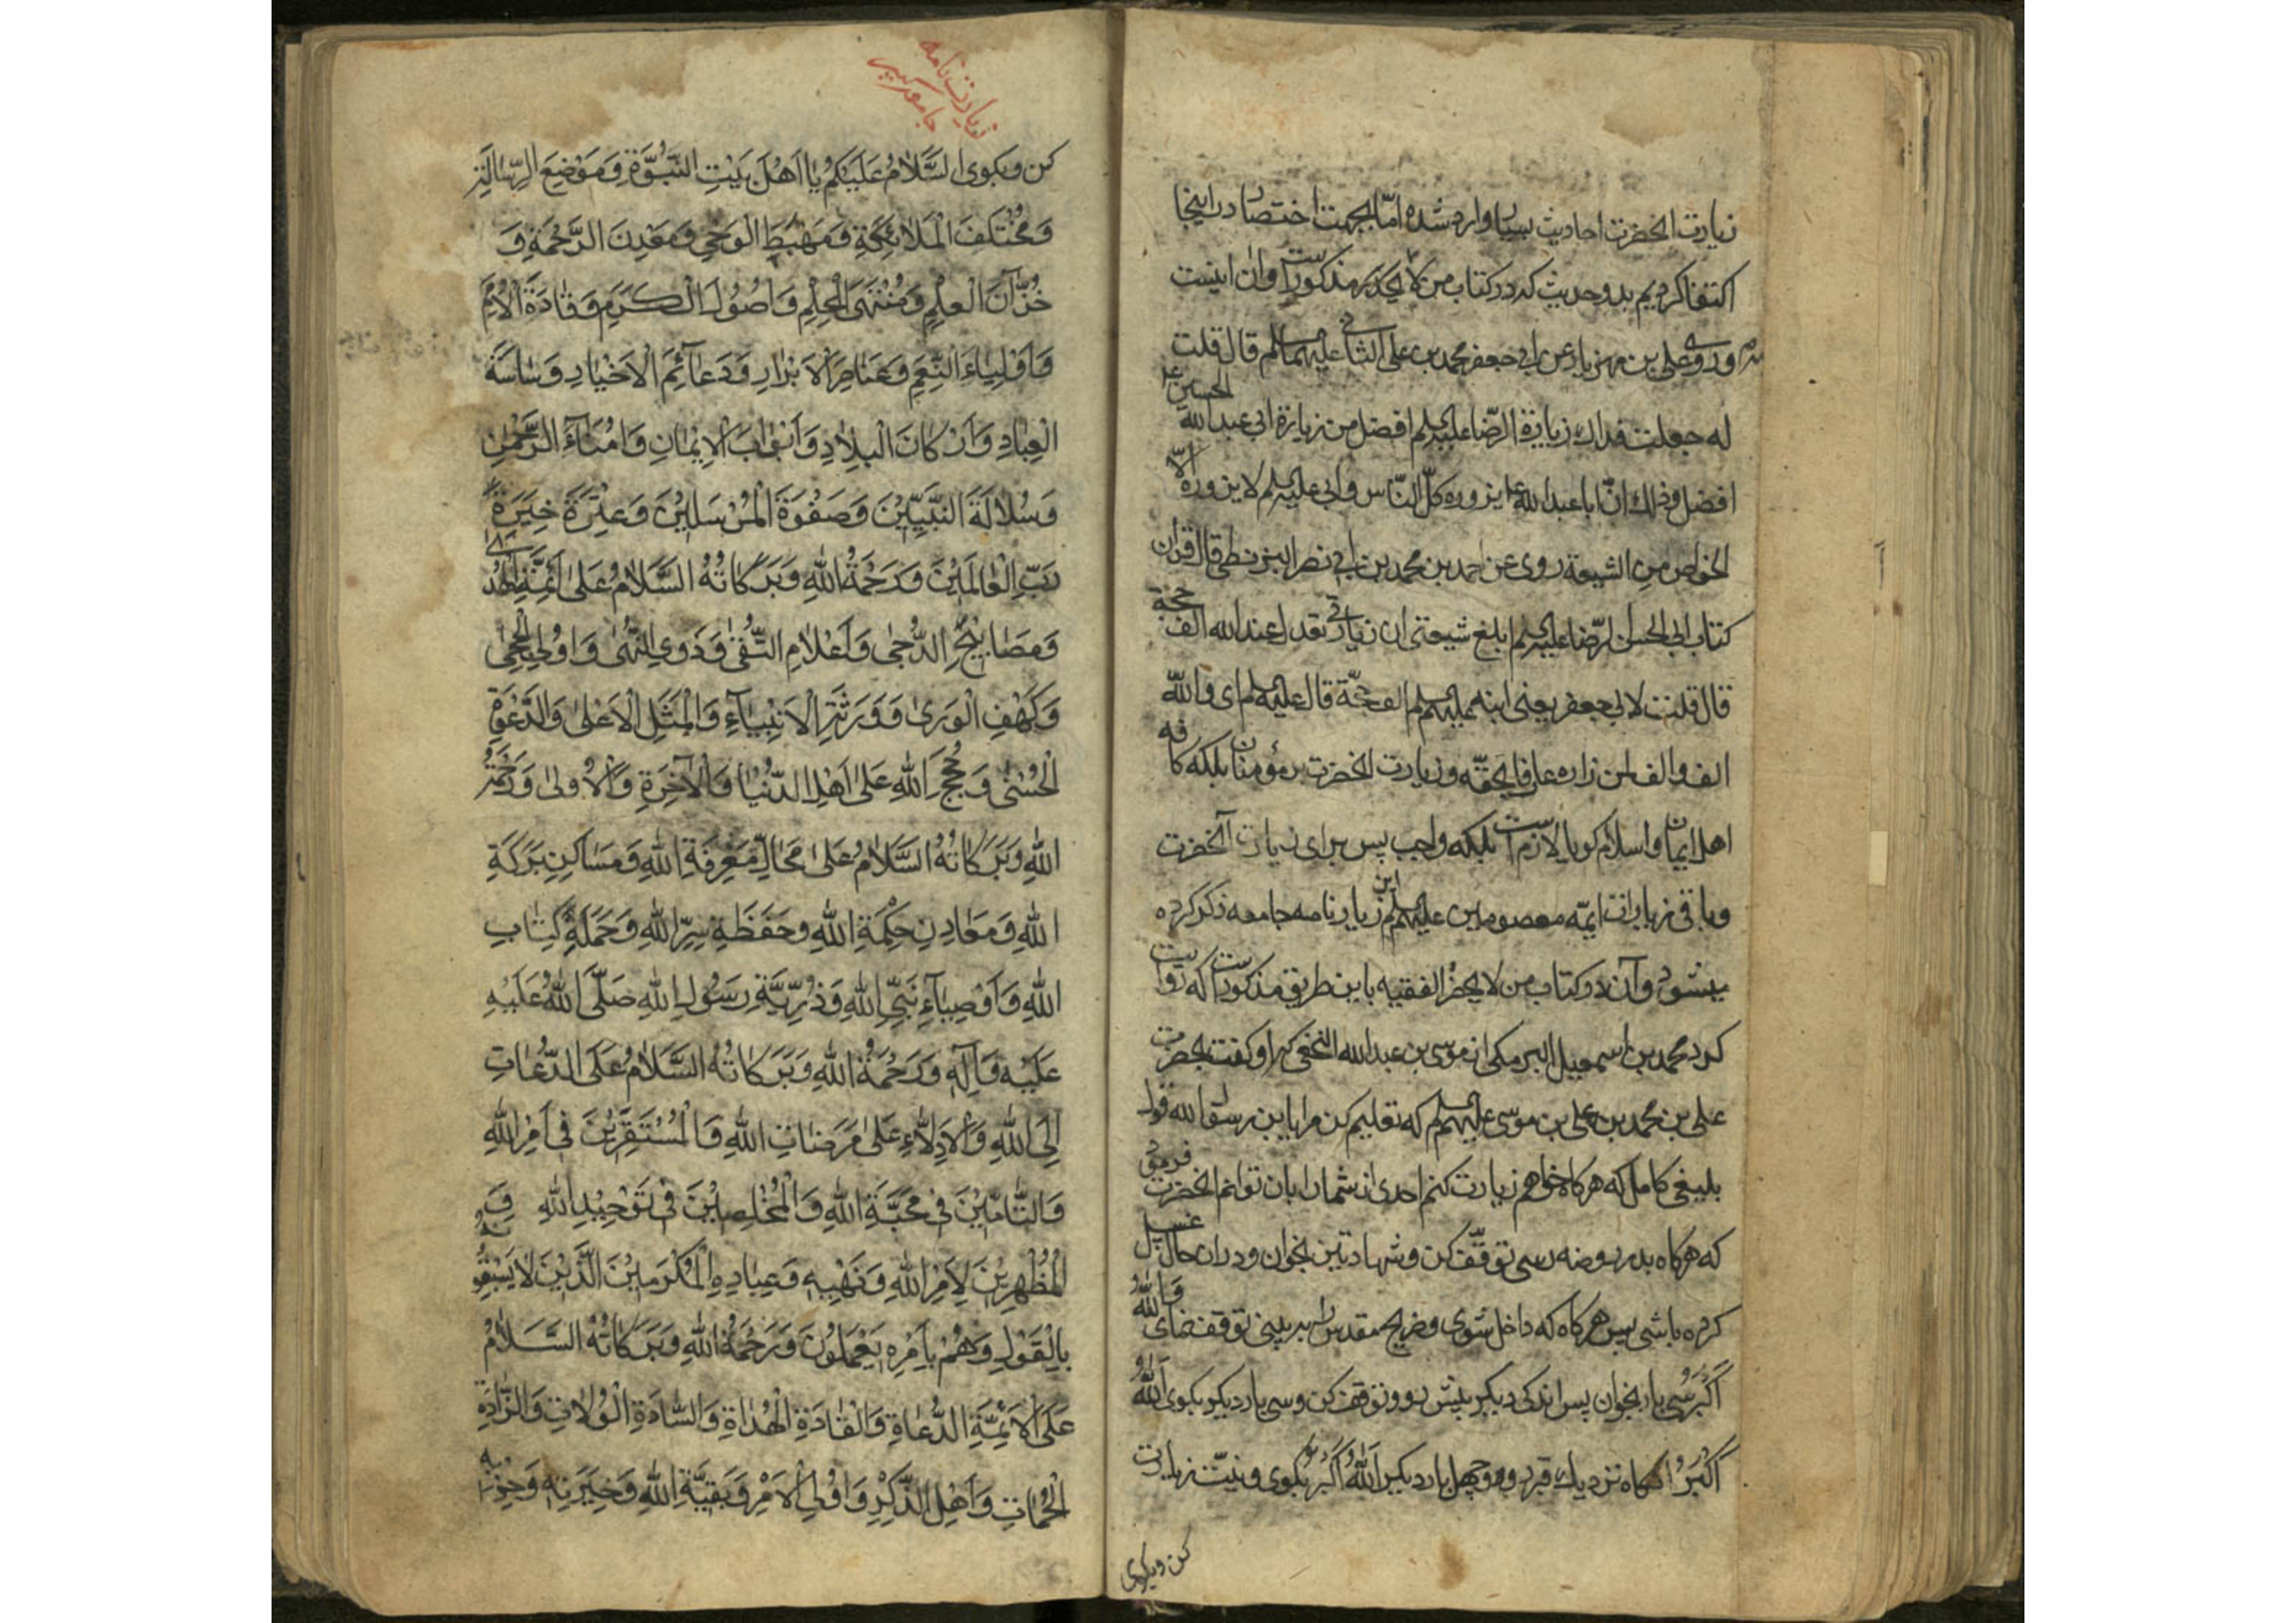 زیارت انحضرت احادیث بسیار وارد شده امّا بجهت اختصار در اینجا
اکتفا کردیم بدو حدیث که در کتاب من لا یحضر مذکور است و ان اینست
وروی علی بن مهزیار عن ابی جعفر محمد بن علی الثانی علیهما السلم قال قلت
له جعلت فداك زیارة الرّضا علیه السلم افضل من زیارة ابی عبدالله الحسین ع
افضل وذلك انّ ابا عبدالله ع یزوره کلّ النّاس وابی علیه السلم لا یزوره الّا
الخواص من الشیعة روی عن احمد بن محمد بن ابی نصر البزنطی قال قرات
کتاب ابی الحسن الرّضا علیه السلم ابلغ شیعتی ان زیارتی تعدل عند الله الف حجّة
قال قلت لابی جعفر یعنی ابنه علیهم السلم الف حجّة قال علیه السلم ای والله
الف والف لمن زاره عارفا بحقّه و زیارت انحضرت بر مؤمنان بلکه کافه
اهل ایمان و اسلام کویا لازم است بلکه واجب پس برای زیارت آنحضرت
و باقی زیارات ایمّه معصومین علیهم السلم این زیارنامه جامعه ذکر کرده
میشود و آن در کتاب من لا یحضر الفقیه باین طریق مذکور است که روایت
کرد محمد بن اسمعیل البرمکی از موسی بن عبدالله النخعی که او کفت بحضرت
علی بن محمد بن علی بن موسی علیهم السلم که تعلیم کن مرا یا بن رسول الله قول
بلیغی کامل که هرکاه خواهم زیارت کنم احدی از شما را بان توانم انحضرت فرمود
که هرکاه بدر روضه رسی توقّف کن و شهادتین بخوان و در ان حال غسل
کرده باشی پس هرکاه که داخل شوی و ضریح مقدس را به بینی توقف نمای و اللهُ
اَکْبَرُ سی بار بخوان پس اندکی دیکر پیش رو و توقف کن و سی بار دیکر بکوی اَللهُ
اَکْبَرُ انکاه نزدیك قبر رو و چهل بار دیکر اَللهُ اَکْبَرُ بکوی و نیّت زیارت
کن و بکوی
زیارت نامه
جامعه کبیر
کن و بکوی السَّلَامُ عَلَیْکُمْ یَا اَهْلَ بَیْتِ النُّبُوَّةِ وَمَوْضِعَ الرِّسَالَةِ
وَمُخْتَلَفَ الْمَلَائِکَةِ وَمَهْبِطَ الْوَحْیِ وَمَعْدِنَ الرَّحْمَةِ وَ
خُزَّانَ الْعِلْمِ وَمُنْتَهَی الْحِلْمِ وَاُصُولَ الْکَرَمِ وَقَادَةَ الْاُمَمِ
وَاَوْلِیَاءَ النِّعَمِ وَعَنَاصِرَ الْاَبْرَارِ وَدَعَائِمَ الْاَخْیَارِ وَسَاسَةَ
الْعِبَادِ وَاَرْکَانَ الْبِلَادِ وَاَبْوَابَ الْاِیْمَانِ وَاُمَنَاءَ الرَّحْمٰنِ
وَسُلَالَةَ النَّبِیِّیْنَ وَصَفْوَةَ الْمُرْسَلِیْنَ وَعِتْرَةَ خِیَرَةِ
رَبِّ الْعَالَمِیْنَ وَرَحْمَةُ اللهِ وَبَرَکَاتُهُ السَّلَامُ عَلٰی اَئِمَّةِ الْهُدٰی
وَمَصَابِیْحِ الدُّجٰی وَاَعْلَامِ التُّقٰی وَذَوِی النُّهٰی وَاُولِی الْحِجٰی
وَکَهْفِ الْوَرٰی وَوَرَثَةِ الْاَنْبِیَاءِ وَالْمَثَلِ الْاَعْلٰی وَالدَّعْوَةِ
الْحُسْنٰی وَحُجَجِ اللهِ عَلٰی اَهْلِ الدُّنْیَا وَالْآخِرَةِ وَالْاُولٰی وَرَحْمَةُ
اللهِ وَبَرَکَاتُهُ السَّلَامُ عَلٰی مَحَالِّ مَعْرِفَةِ اللهِ وَمَسَاکِنِ بَرَکَةِ
اللهِ وَمَعَادِنِ حِکْمَةِ اللهِ وَحَفَظَةِ سِرِّ اللهِ وَحَمَلَةِ کِتَابِ
اللهِ وَاَوْصِیَاءِ نَبِیِّ اللهِ وَذُرِّیَّةِ رَسُولِ اللهِ صَلَّی اللهُ عَلَیْهِ
عَلَیْهِ وَآلِهِ وَرَحْمَةُ اللهِ وَبَرَکَاتُهُ السَّلَامُ عَلَی الدُّعَاتِ
اِلَی اللهِ وَالْاَدِلَّاءِ عَلٰی مَرَضَاتِ اللهِ وَالْمُسْتَقِرِّیْنَ فِی اَمْرِ اللهِ
وَالتَّامِّیْنَ فِی مَحَبَّةِ اللهِ وَالْمُخْلِصِیْنَ فِی تَوْحِیْدِ اللهِ وَ
الْمُظْهِرِیْنَ لِاَمْرِ اللهِ وَنَهْیِهِ وَعِبَادِهِ الْمُکْرَمِیْنَ الَّذِیْنَ لَا یَسْبِقُونَهُ
بِالْقَوْلِ وَهُمْ بِاَمْرِهِ یَعْمَلُونَ وَرَحْمَةُ اللهِ وَبَرَکَاتُهُ السَّلَامُ
عَلَی الْاَئِمَّةِ الدُّعَاةِ وَالْقَادَةِ الْهُدَاةِ وَالسَّادَةِ الْوُلَاتِ وَالذَّادَةِ
الْحُمَاتِ وَاَهْلِ الذِّکْرِ وَاُوْلِی الْاَمْرِ وَبَقِیَّةِ اللهِ وَخِیَرَتِهِ وَحِزْبِهِ